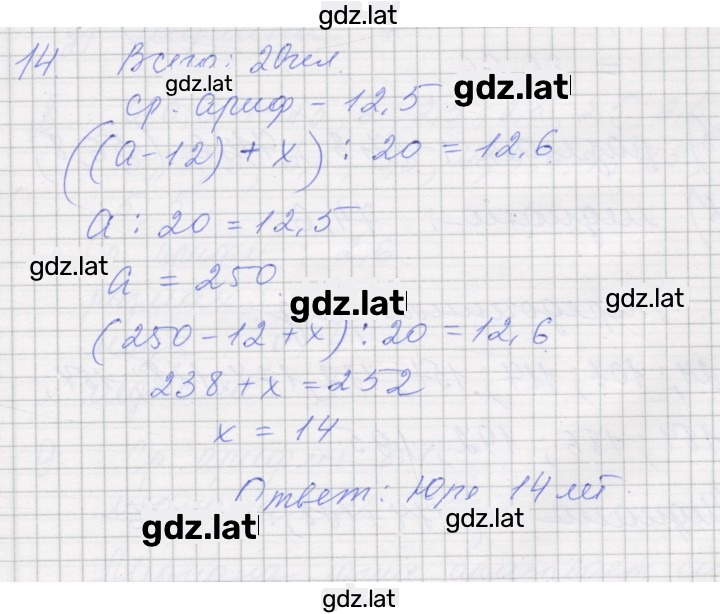 gdz.lat
14. Всего: 20 чел.
gdz.lat
ср. ариф - 12,5
gdz.lat
((a-12) + x) : 20 = 12,6
a : 20 = 12,5
gdz.lat
a = 250
gdz.lat
gdz.lat
(250-12+x) : 20 = 12,6
238 + x = 252
x = 14
Ответ: Юре 14 лет
gdz.lat
gdz.lat
gdz.lat